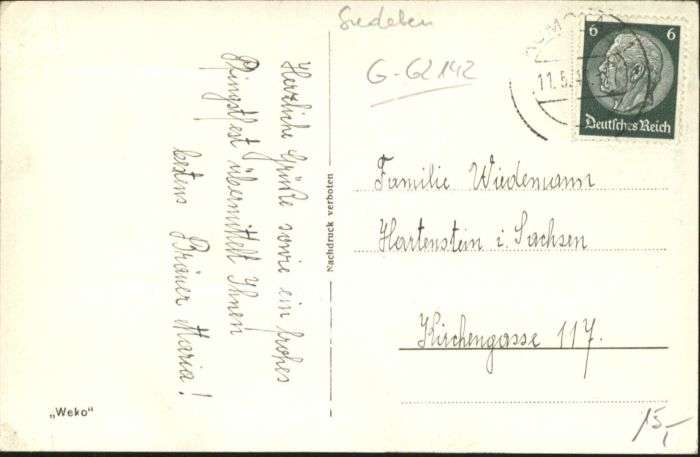 Siedeben
G-G2142
6 6
11.5.
Deutsches Reich
Herzliche Grüße sowie ein frohes
Pfingstfest übermittelt Ihnen
bestens Bräuer Maria!
Nachdruck verboten
Familie Wiedemann
Hartenstein i. Sachsen
Kirchengasse 117.
„Weko“
15,-